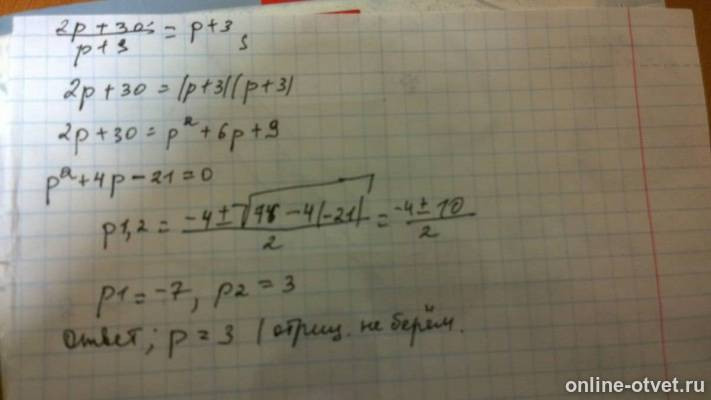 2p + 30 / p + 3 = p + 3 ;
2p + 30 = (p+3)(p+3)
2p + 30 = p² + 6p + 9
p² + 4p - 21 = 0
p1,2 = -4 ± √16 - 4(-21) / 2 = -4 ± 10 / 2
p1 = -7, p2 = 3
Ответ; p = 3 (отриц. не берём.
online-otvet.ru